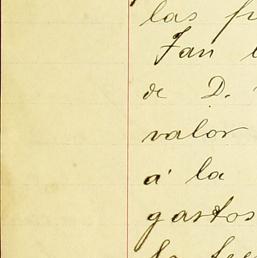 las
Tan
de D.
valor
á la
gastos